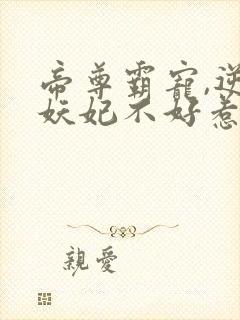 帝尊霸宠,逆
妖妃不好惹
親愛